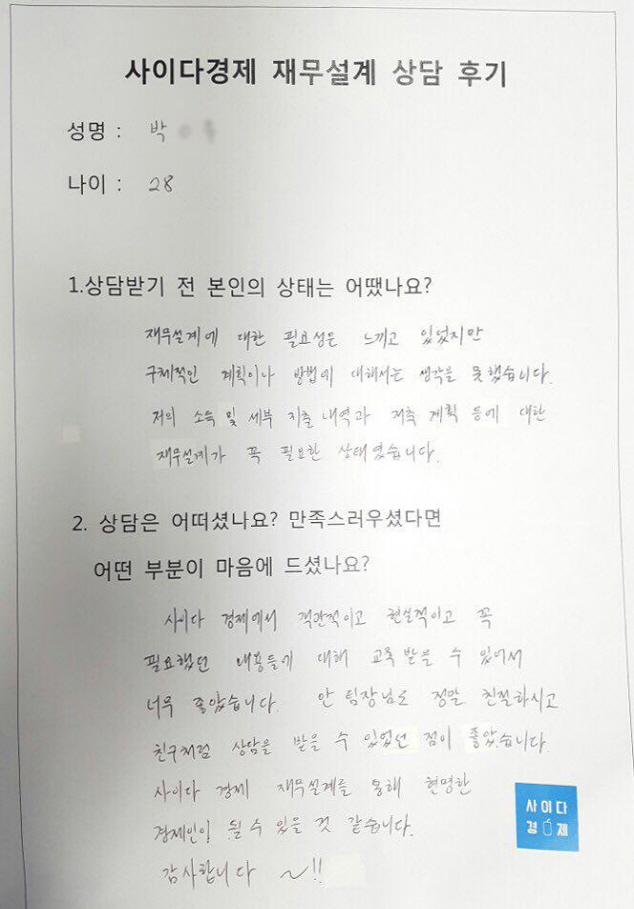 사이다경제 재무설계 상담 후기
성명 : 박
나이 : 28
1.상담받기 전 본인의 상태는 어땠나요?
재무설계에 대한 필요성은 느끼고 있었지만
구체적인 계획이나 방법에 대해서는 생각을 못했습니다.
저의 소득 및 세부 지출 내역과 저축 계획 등에 대한
재무설계가 꼭 필요한 상태였습니다.
2. 상담은 어떠셨나요? 만족스러우셨다면
어떤 부분이 마음에 드셨나요?
사이다 경제에서 객관적이고 현실적이고 꼭
필요했던 내용들에 대해 교육 받을 수 있어서
너무 좋았습니다. 안 팀장님도 정말 친절하시고
친구처럼 상담을 받을 수 있었던 점이 좋았습니다.
사이다 경제 재무설계를 통해 현명한
경제인이 될 수 있을 것 같습니다.
감사합니다 ~!!
사이다
경제